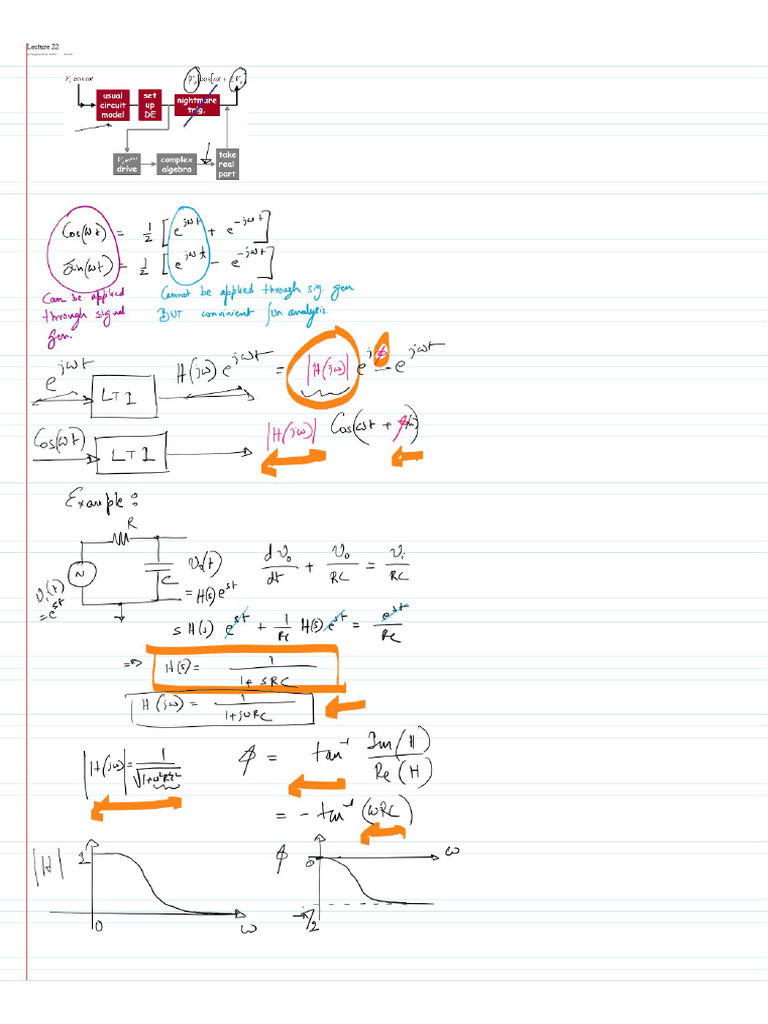 Lecture 22
V_i cos ωt
|V_p| cos[ωt + ∠V_p]
usual circuit model
set up DE
nightmare trig.
drive
complex algebra
take real part
Cos(ωt) = 1/2 [e^{jωt} + e^{-jωt}]
Sin(ωt) = 1/2 [e^{jωt} - e^{-jωt}]
Can be applied through signal gen.
Cannot be applied through sig. gen
BUT convinient fun analysis.
e^{jωt}
LTI
H(jω) e^{jωt} = |H(jω)| e^{jϕ} e^{jωt}
Cos(ωt)
LTI
|H(jω)| Cos(ωt + ϕ
Example:
R
C
v_i(t) = e^{st}
v_o(t) = H(s) e^{st}
dv_o/dt + v_o/RC = v_i/RC
s H(s) e^{st} + 1/RC H(s) e^{st} = e^{st}/RC
=> H(s) = 1/(1 + sRC)
H(jω) = 1/(1+jωRC)
|H(jω)| = 1/√(1+ω²R²C²)
ϕ = tan^{-1} Im(H)/Re(H)
= - tan^{-1} (ωRC)
|H|
1
0
ω
ϕ
0
ω
-π/2